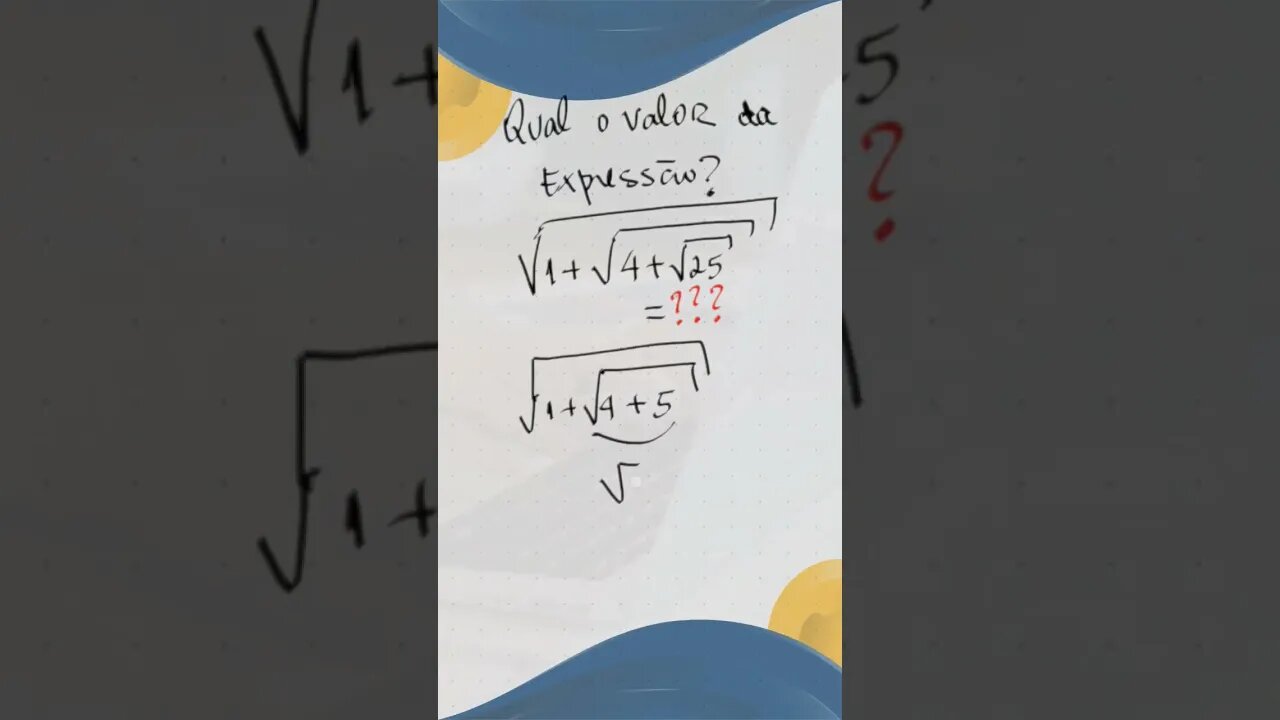 Qual o valor da
Expressão?
√1+√4+√25
=???
√1+√4+5
√